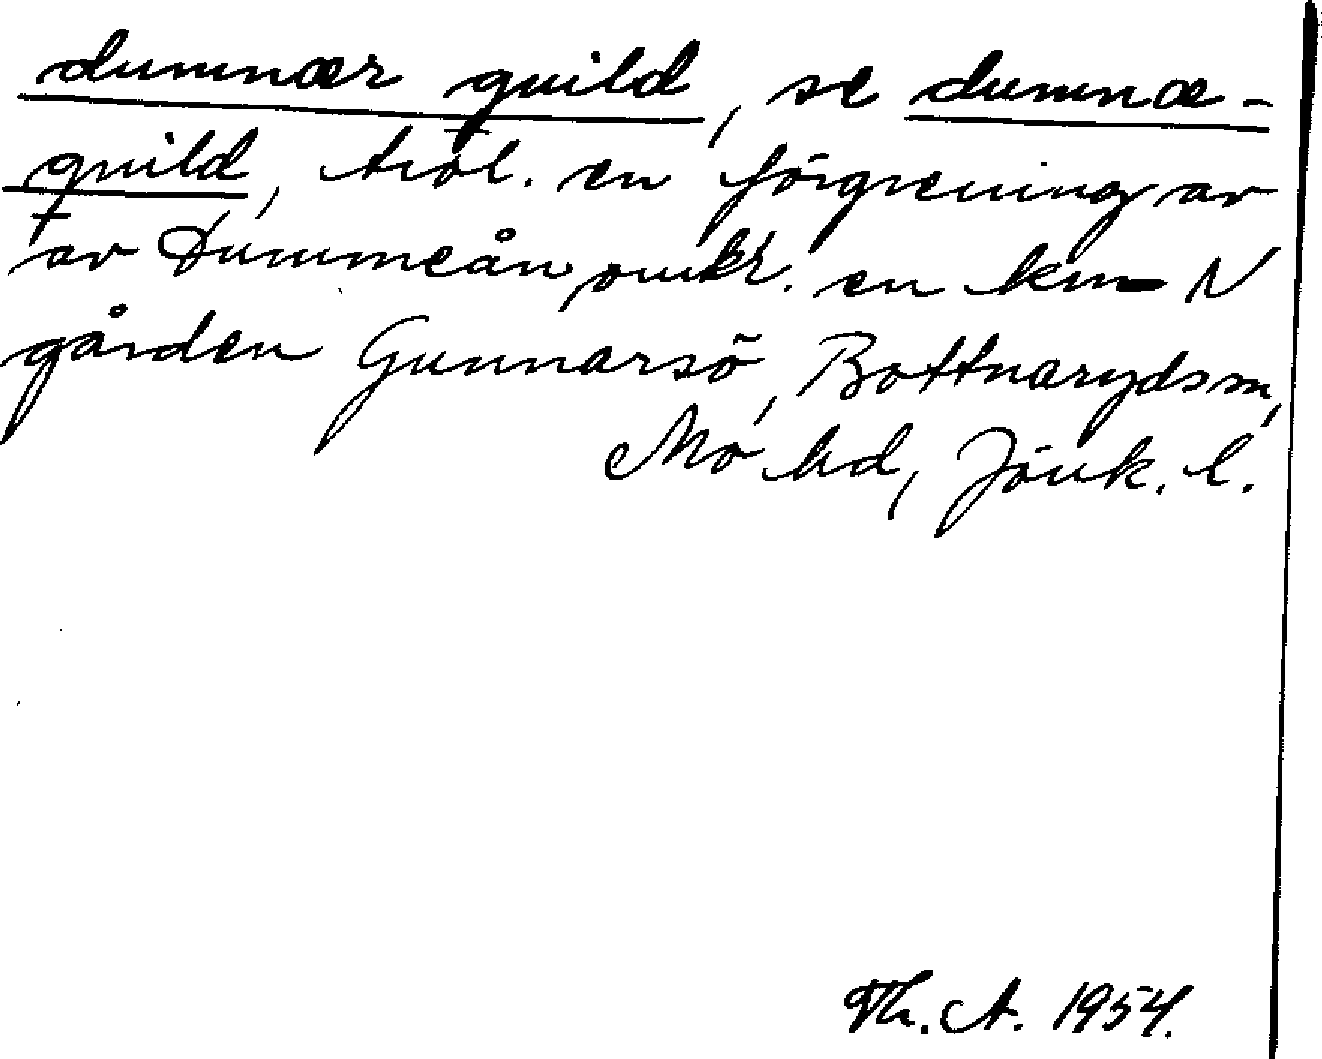 dumnær quild, se dumnæ-
quild, trol. en förgrening av
av Dummeån, omkr. en km N
gården Gunnarsö, Bottnaryds sn,
Mo hd, Jönk. l.
Th. A. 1954.